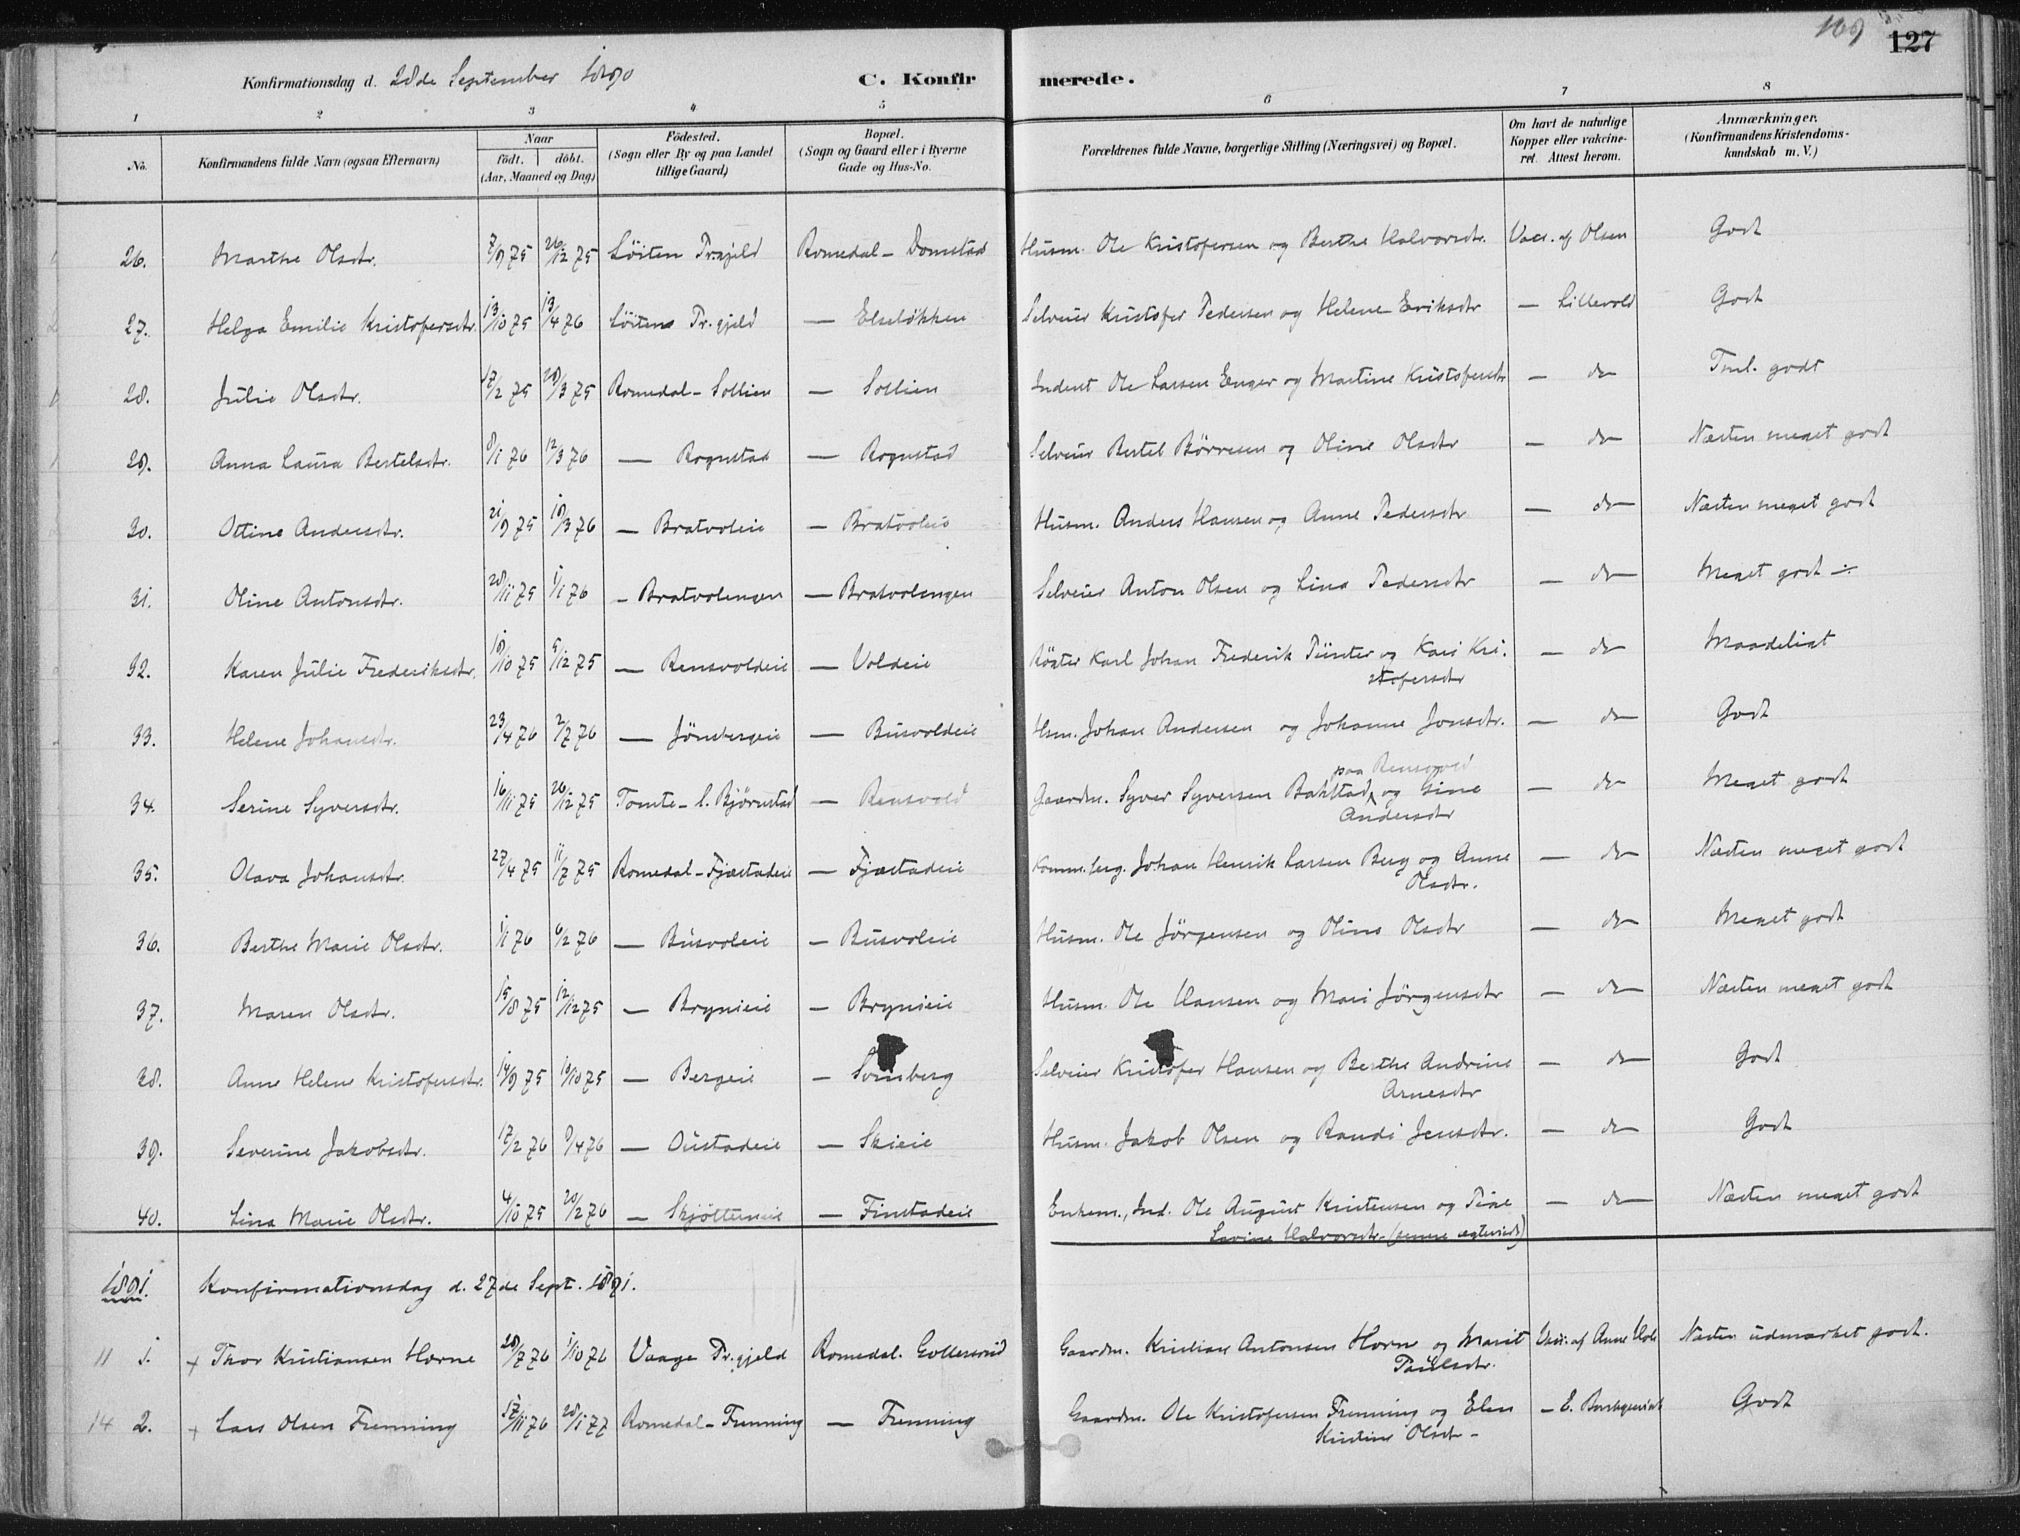 169
127
Konfirmationsdag d. 28de September 1890 C. Konfirmerede.
1 2 3 4 5 6 7 8
No. Konfirmandens fulde Navn (ogsaa Efternavn) Naar födt. döbt. (Aar, Maaned og Dag) Födested. (Sogn eller By og paa Landet tillige Gaard) Bopæl. (Sogn og Gaard eller i Byerne Gade og Hus-No. Forældrenes fulde Navne, borgerlige Stilling (Næringsvei) og Bopæl. Om havt de naturlige Kopper eller vakcineret. Attest herom. Anmærkninger. (Konfirmandens Kristendomskundskab m. V.)
26. Marthe Olsdtr. 7/9 75 26/12 75 Löiten Pr.gjeld Romedal - Domstad Husm. Ole Kristofersen og Berthe Halvorsdtr. Vacc. af Olsen Godt
27. Helga Emilie Kristofersdtr. 13/10 75 13/4 76 Löitens Pr.gjeld — Elselökken Selveier Kristofer Pedersen og Helene Eriksdtr — Lillevold Godt
28. Julie Olsdtr. 17/2 75 29/3 75 Romedal - Sollien — Sollien Inderst Ole Larsen Enger og Martine Kristofersdtr — do Tml. godt
29. Anna Laura Bertelsdtr. 8/1 76 12/3 76 — Rognstad — Rognstad Selveier Bertel Börresen og Oline Olsdtr — do Næsten meget godt
30. Ottine Andersdtr. 21/9 75 19/3 76 — Bratvoleie — Bratvoleie Husm. Anders Hansen og Anne Pedersdtr — do Næsten meget godt
31. Oline Antonsdtr. 28/11 75 1/1 76 — Bratvolengen — Bratvolengen Selveier Anton Olsen og Lina Pedersdtr — do Meget godt -:-
32. Karen Julie Frederiksdtr. 19/10 75 5/12 75 — Rensvoldeie — Voldeie Karl Johan Frederik Pünter og Kari Kri-
stofersdtr — do Maadeligt
33. Helene Johansdtr. 23/4 76 2/7 76 — Jönsbergeie — Busvoldeie Hsm. Johan Andersen og Johanne Jonsdtr. — do Godt
paa Rensvold
34. Serine Syversdtr. 16/11 75 26/12 75 Tomte - l. Björnstad — Rensvold Gaardm. Syver Syversen Bakstad og Gine
Andersdtr — do Meget godt
35. Olava Johansdtr. 27/4 75 11/7 75 Romedal - Fjæstadeie — Fjæstadeie Johan Henrik Larsen Berg og Anne
Olsdtr. — do Næsten meget godt
36. Berthe Marie Olsdtr. 1/1 76 6/2 76 — Busvoleie — Busvoleie Husm. Ole Jörgensen og Oline Olsdtr — do Meget godt
37. Maren Olsdtr. 15/8 75 12/12 75 — Brynieie — Brynieie Husm. Ole Hansen og Mari Jörgensdtr — do Næsten meget godt
38. Anne Helene Kristofersdtr. 14/9 75 10/10 75 — Bergeie — Sörnsberg Selveier Kristofer Hansen og Berthe Andrine
Arnesdtr — do Godt
39. Severine Jakobsdtr. 17/2 76 9/4 76 — Oustadeie — Skieie Husm. Jakob Olsen og Randi Jensdtr. — do Godt
40. Lina Marie Olsdtr. 4/10 75 20/2 76 — Skjöttuneie — Finstadeie Enkem., Ind. Ole August Kristensen og
Lovine Halvorsdtr. (senere ægteviet) — do Næsten meget godt
1891. Konfirmationsdag d. 27de Sept. 1891.
11 1. + Thor Kristiansen Horne 28/7 76 1/10 76 Vaage Pr.gjeld Romedal. Gaardm. Kristian Antonsen Horne og Marit
Paulsdtr. Vacc. af Anne Hole Næsten udmærket godt.
14 2. + Lars Olsen Frenning 17/11 76 28/1 77 Romedal - Frenning — Frenning Gaardm. Ole Kristofersen Frenning og Elen
Kristine Olsdtr — E. Godt